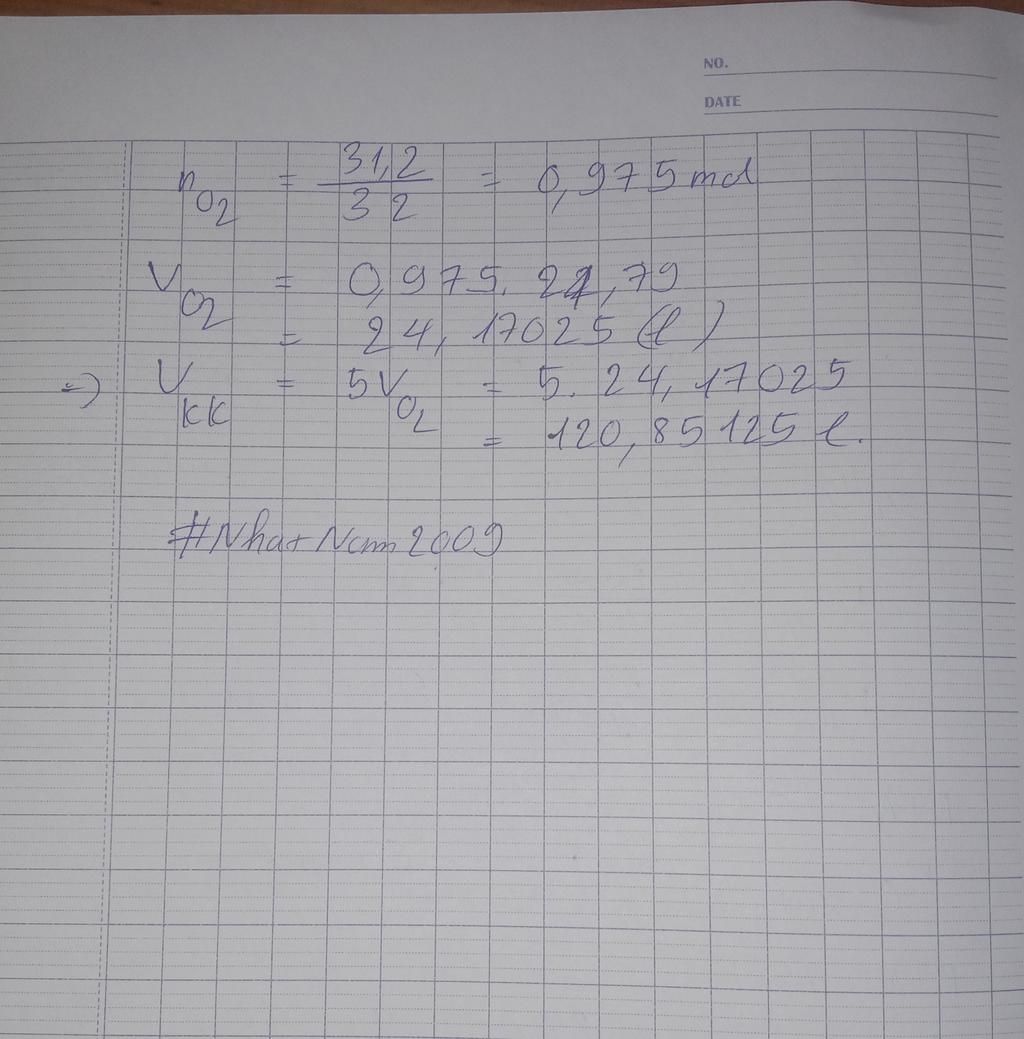 NO.
DATE
n O2 = 31,2 / 32 = 0,975 mol
V O2 = 0,975. 24,79
= 24,17025 (l)
=> V KK = 5V O2 = 5. 24,17025
= 120,85125 l.
#NhatNam2009